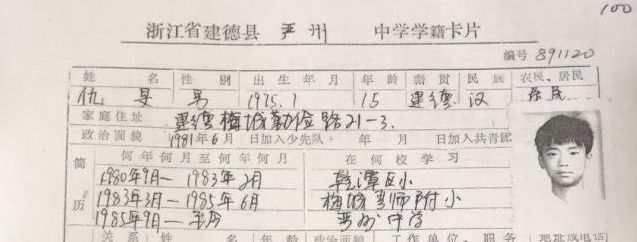 100
浙江省建德县 严州 中学学籍卡片
编号 891120
姓名 性别 出生年月 年龄 籍贯 民族 农民、居民
仇旻 男 1975.1 15 建德 汉 居民
家庭住址 建德梅城勤俭路21-3.
政治面貌 1981年6月 日加入少先队。 年 月 日加入共青团
简历 何年何月至何年何月 在何校学习
1980年9月— 1983年2月 乾潭区小
1983年3月— 1985年6月 梅城 师附小
1985年9月— 严州中学
关系 姓名 年龄 政治面貌 工作单位、职务